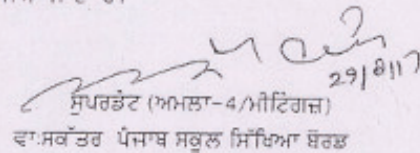 29/8/17
ਸੁਪਰਡੰਟ (ਅਮਲਾ-4/ਮੀਟਿੰਗਜ਼)
ਵਾ:ਸਕੱਤਰ ਪੰਜਾਬ ਸਕੂਲ ਸਿੱਖਿਆ ਬੋਰਡ